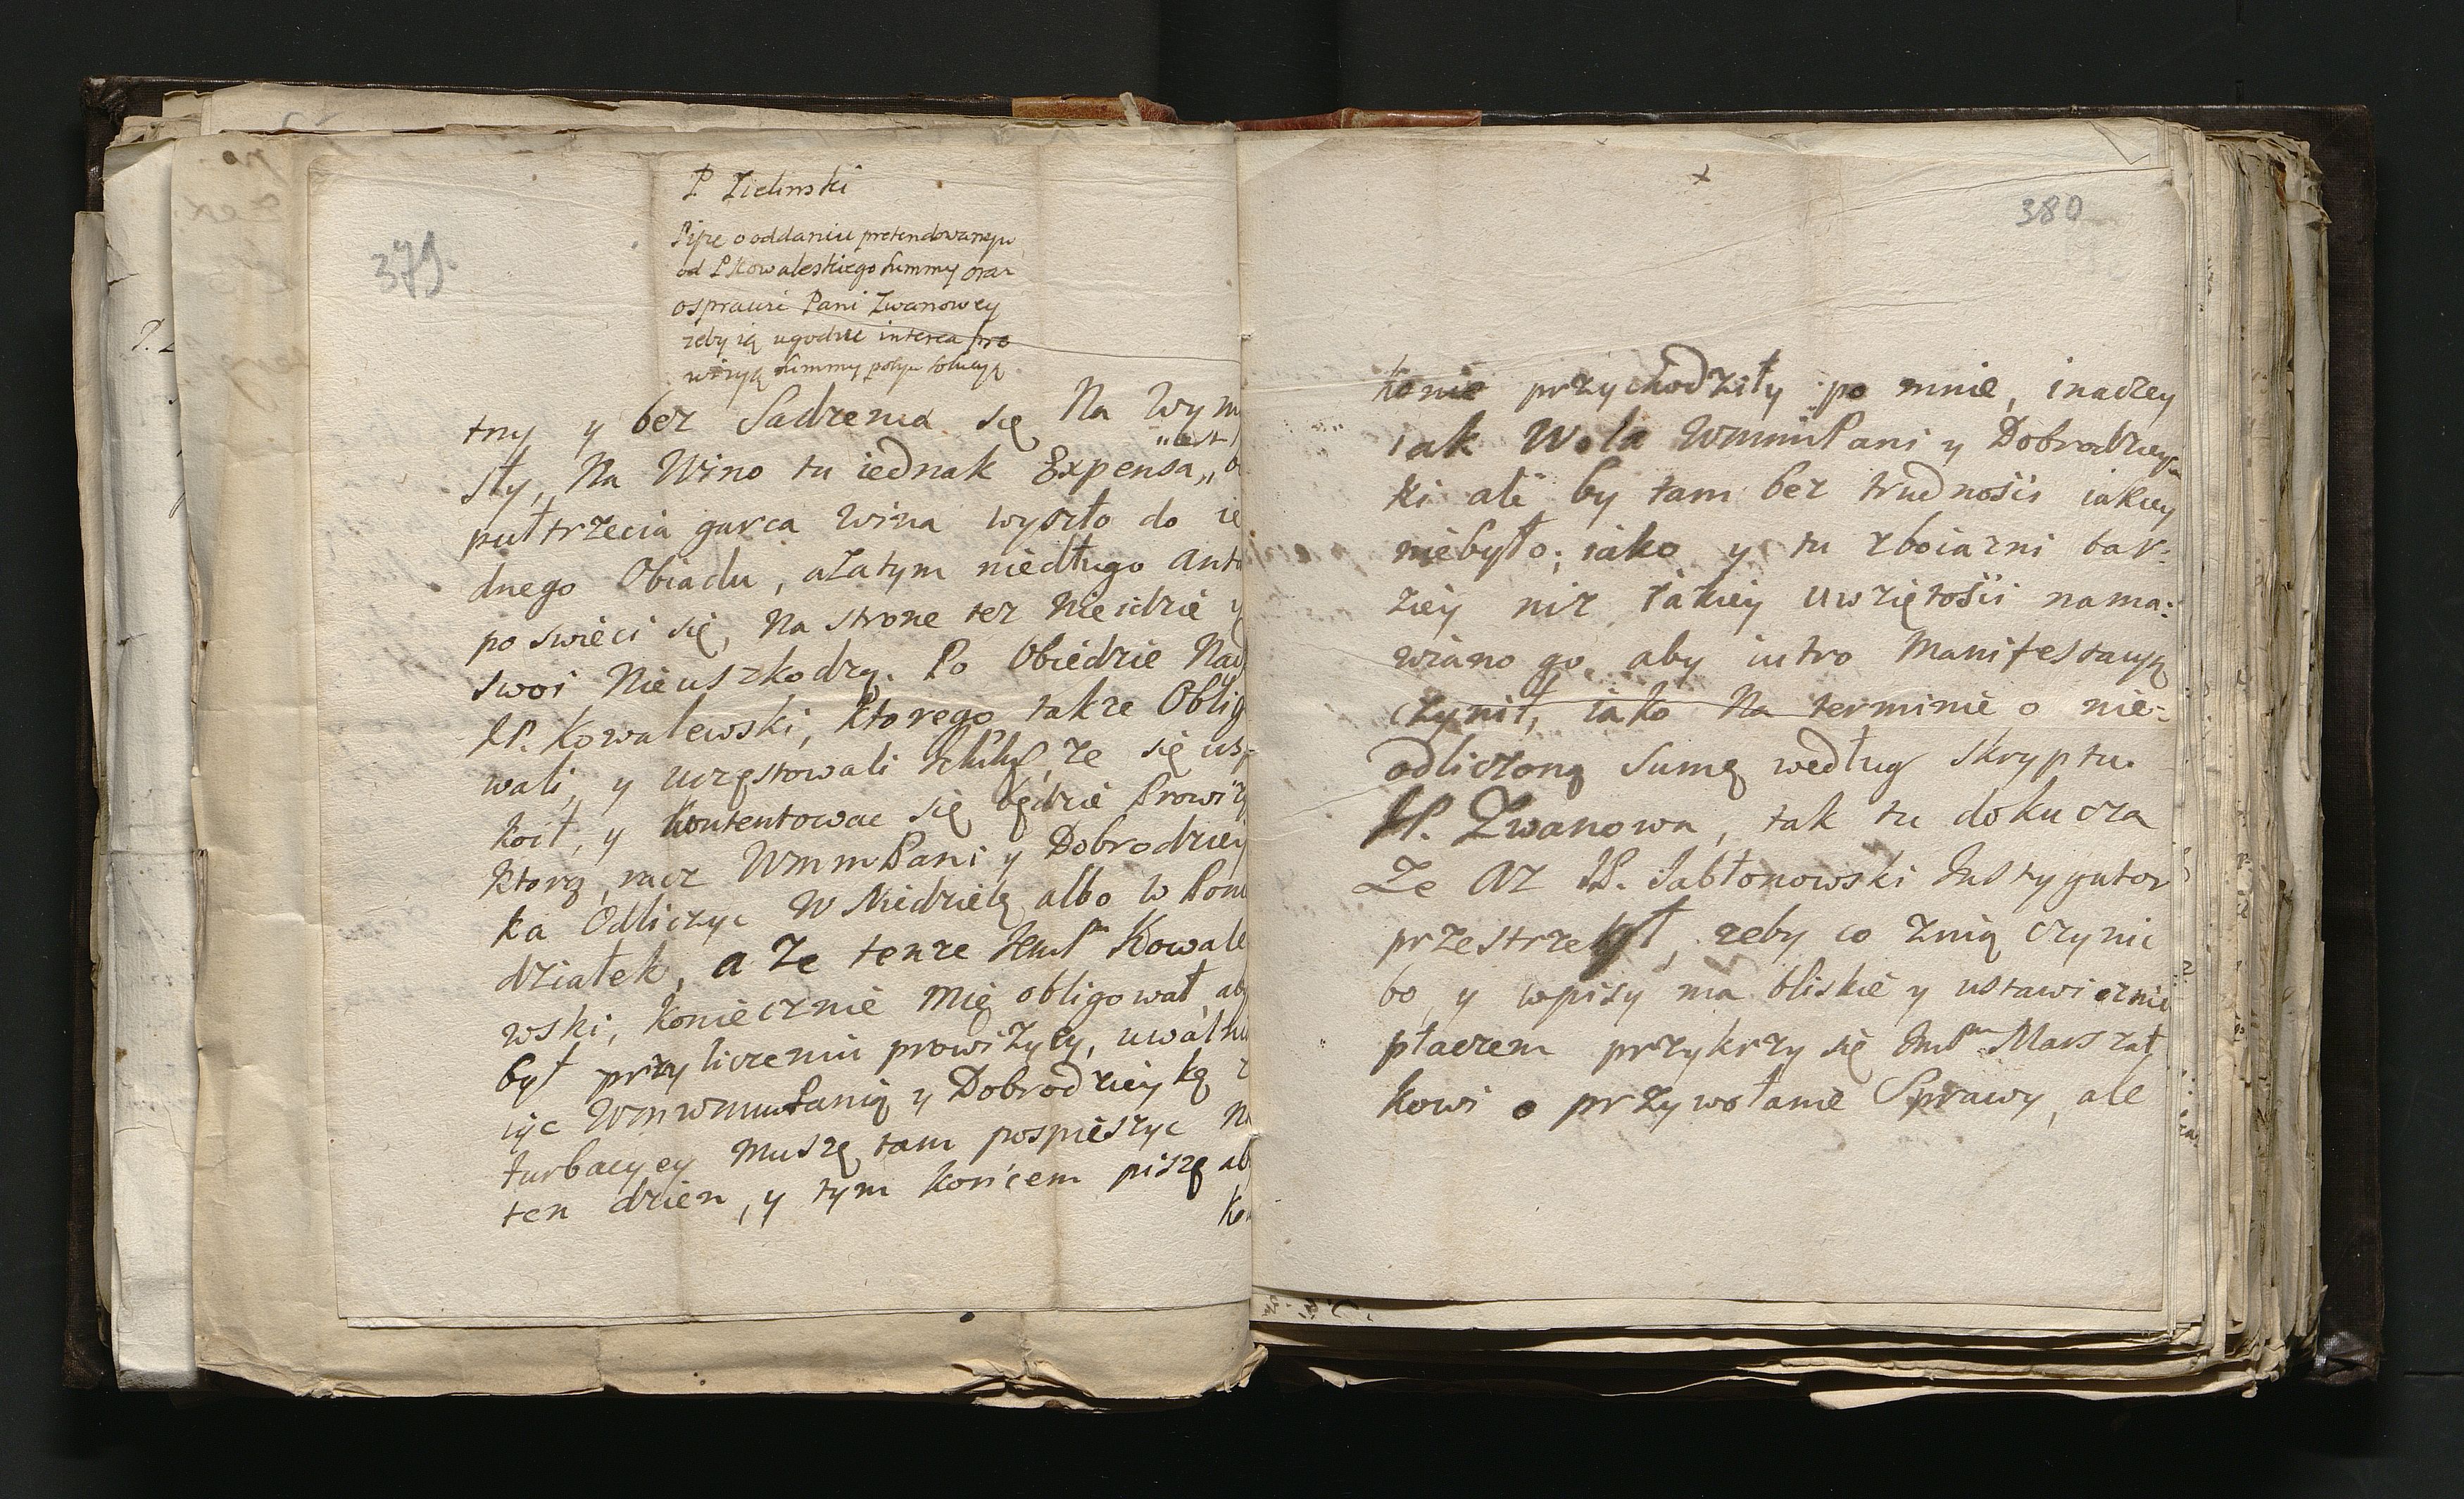 379.
P. Zielinski
Pisze o oddaniu pretendowaney
od P Kowaleskiego Summy oraz
o sprawie Pani Zwanowey
zeby ią ugodzic interea pro
wizyą Summy
tny y bez Sadzenia się Na Wym
sły, Na Wino tu iednak Expensa
pułtrzecia garca Wina wyszło do ie
dnego Obiadu, a zatym niedługo Anta
poswieci się, Na strone tez Nie idzie y
swoi Nieuszkodzą. Po Obiedzie Nad
JP. Kowalewski, ktorego takze Oblig
wali, y uczęstowali ze się usp
koił, y kontentowac się będzie Prowizy
ktorą racz WmmPani y Dobrodziey
ka Odliczyc W Niedzielę albo w Poni
działek, a Ze tenze JmP Kowale
wski, koniecznie mię obligował aby
był przy liczeniu prowizyey, uwalni
iąc WmmPanią y Dobrodzieykę z
turbacyey muszę tam pospieszyc na
ten dzien, y tym koncem piszę aby
ko
380
x
konie przychodziły po mnie, inaczey
iak Wola WmmPani y Dobrodziey
ki ale by tam bez trudnosci iakiey
niebyło; iako y tu z boiazni bar-
ziey niz iakiey uwziętosci nama:
wiano go, aby iutro Manifestacyą
czynił, iako Na terminie o nie-
odliczoną Sumę według Skryptu.
JP. Zwanowa, tak tu dokucza
Ze Az JP. Jabłonowski Instygator
przestrzegł, zeby co znią czynic
bo, y wpisy ma bliskie y ustawicznie
płaczem przykrzy się JmP Marszał
kowi o przywołanie Sprawy, ale